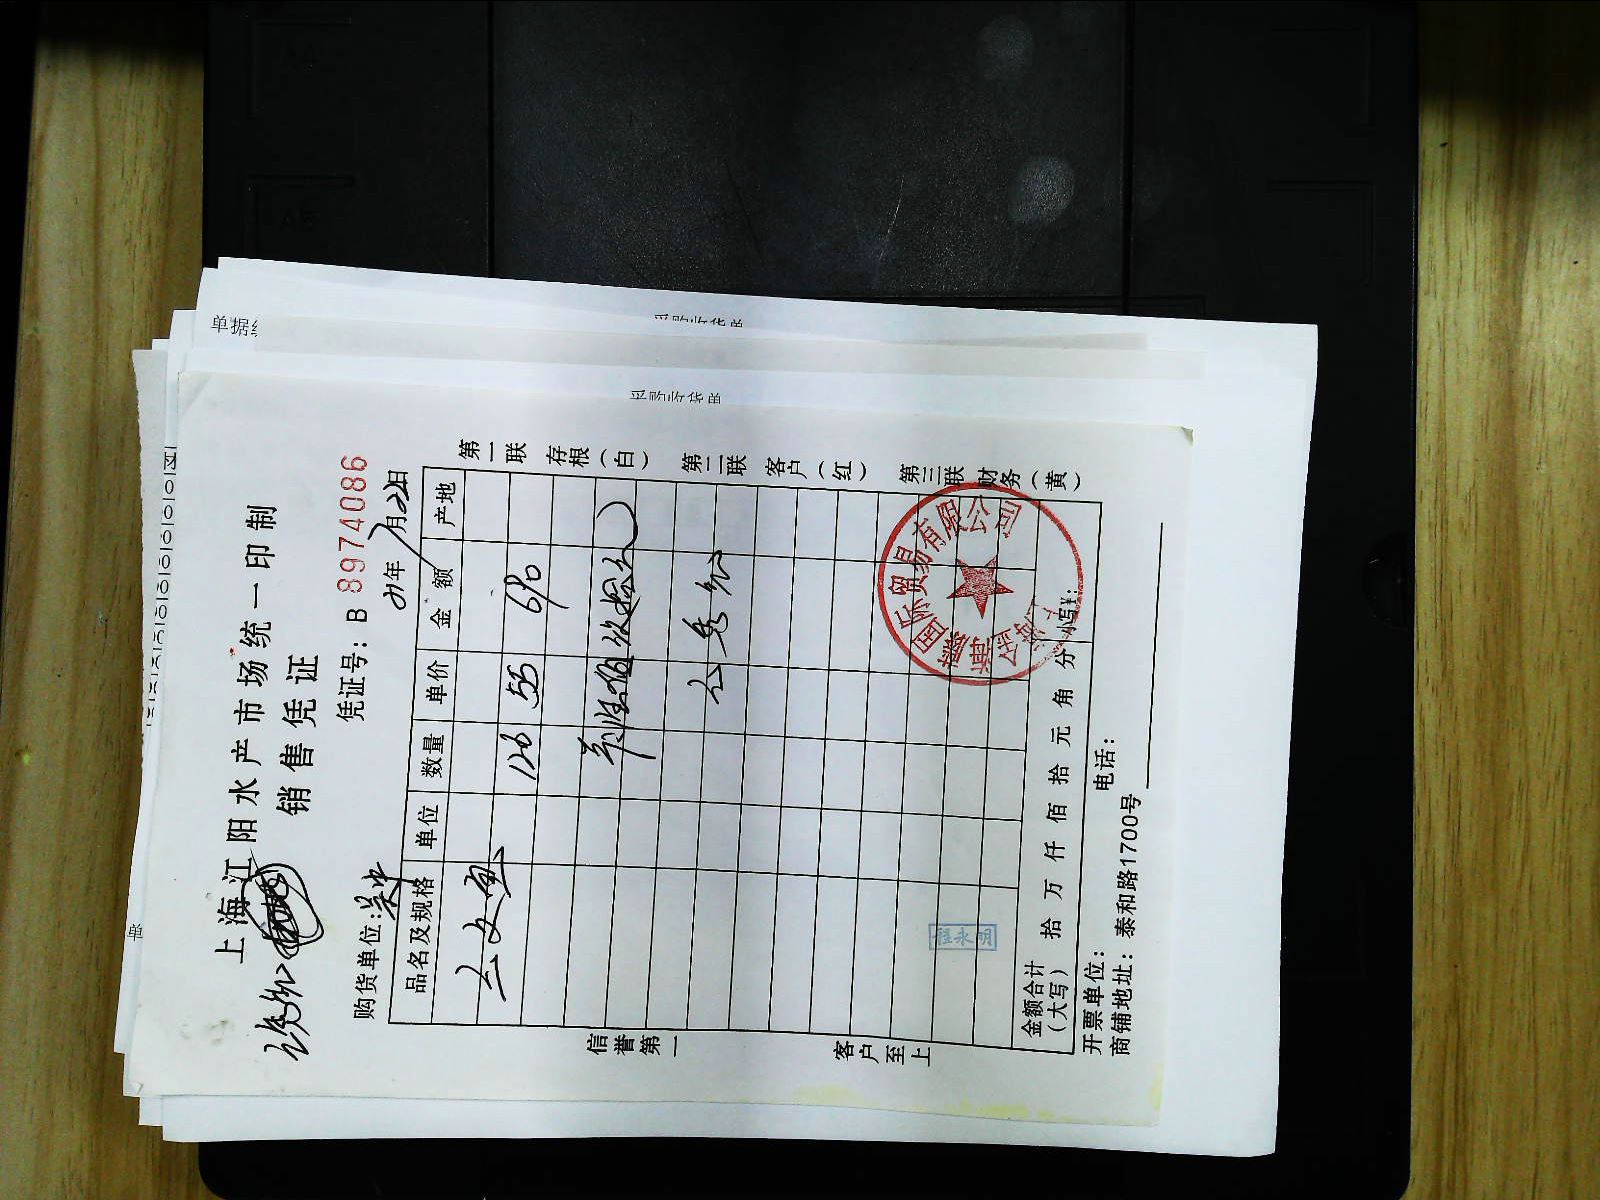 上海江阳水产市场统一印制
销售凭证
凭证号：B 8974086
购货单位：
21年7月22日
品名及规格 单位 数量 单价 金额 产地
三文鱼 126 55 690
金额合计（大写） 拾 万 仟 佰 拾 元 角 分 小写¥：
开票单位： 电话：
商铺地址：泰和路1700号
信誉第一
客户至上
第一联 存根（白）
第二联 客户（红）
第三联 财务（黄）
国际贸易有限公司
程永明
采购收货单
采购收货单
单据
单